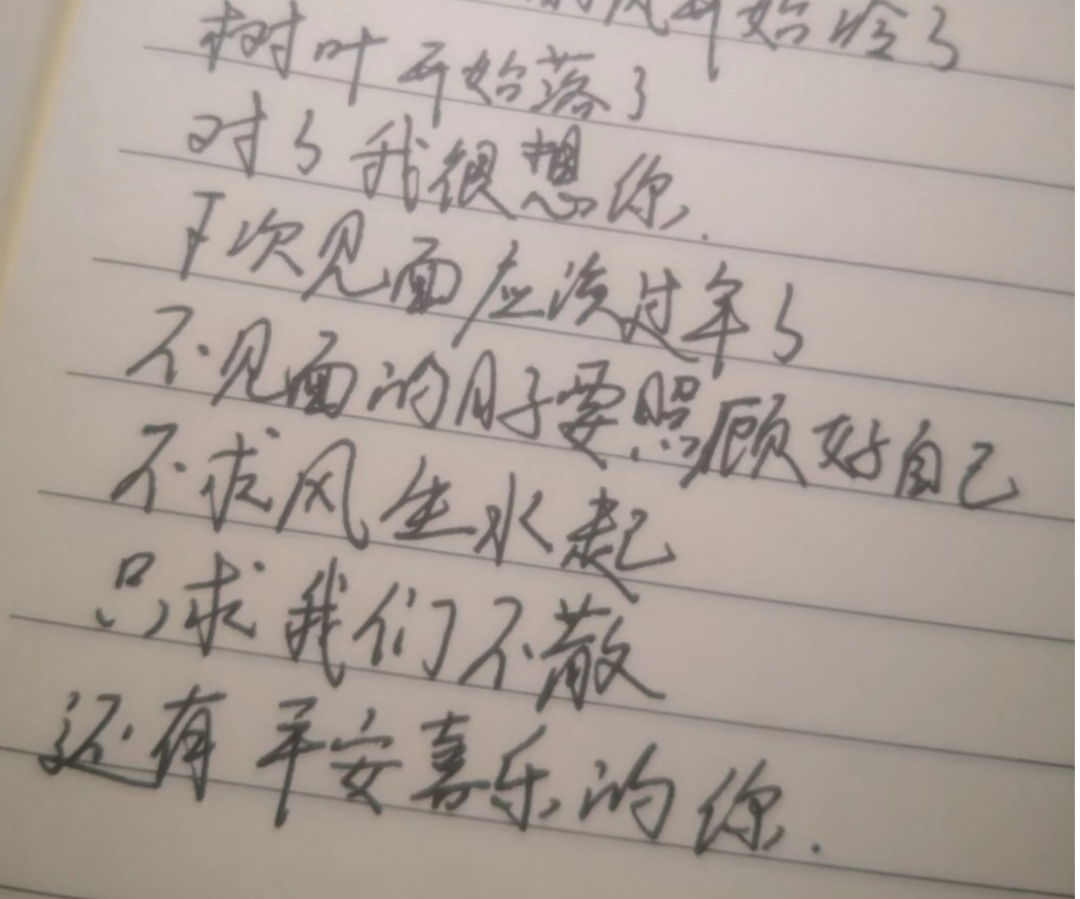 风开始冷了
树叶开始落了
对了我很想你.
下次见面应该过年了
不见面的日子要照顾好自己
不求风生水起
只求我们不散
还有平安喜乐的你.